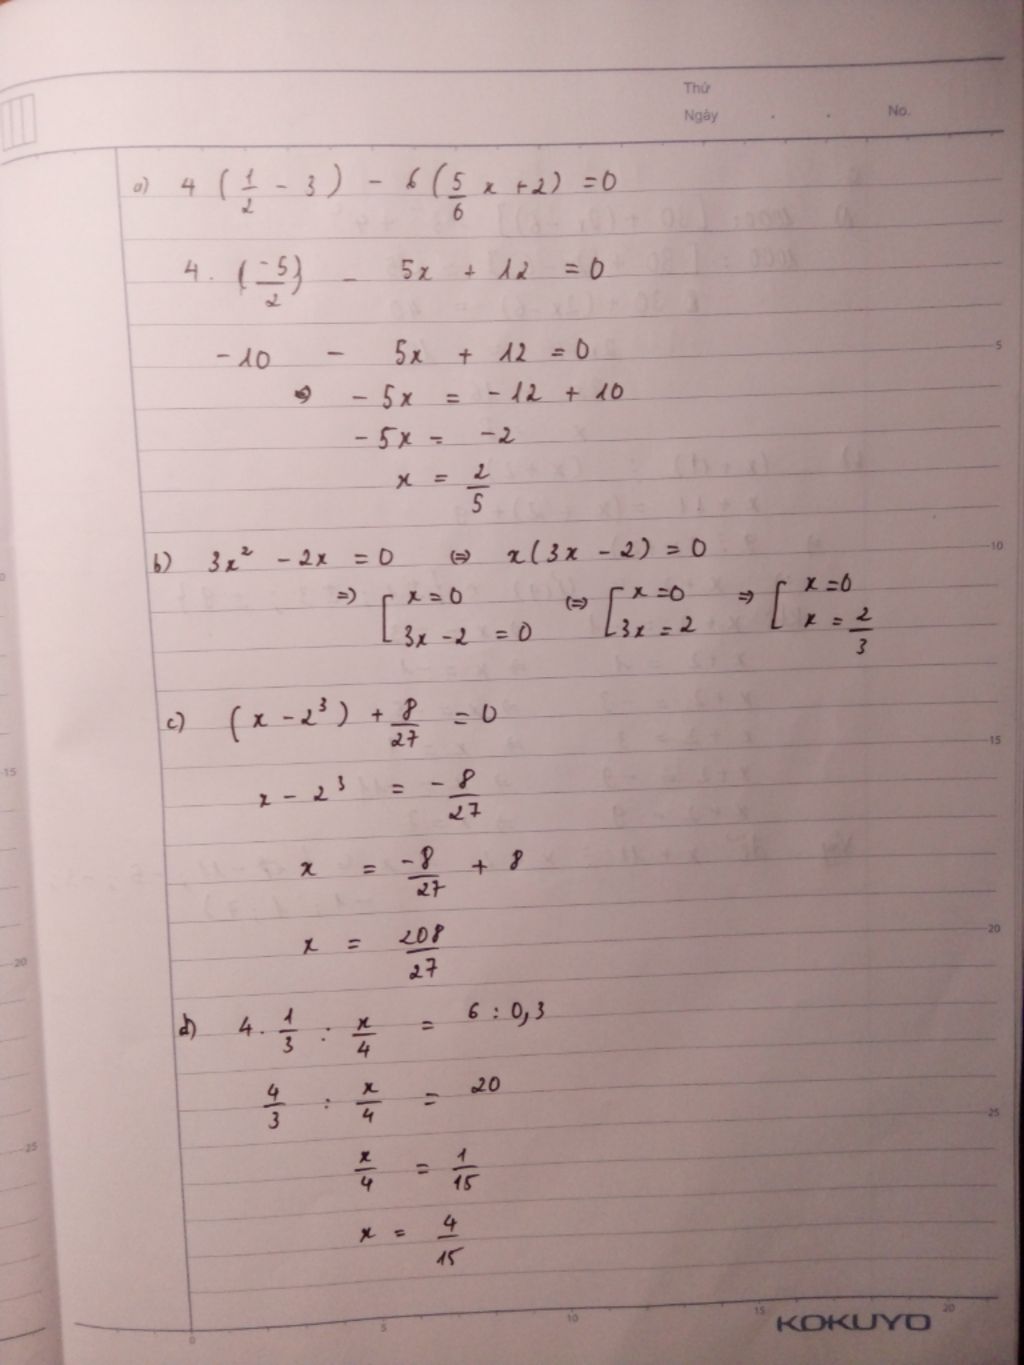 Thứ
Ngày . . No.
a) 4 (1/2 - 3) - 6(5/6 x + 2) = 0
4. (-5/2) - 5x + 12 = 0
-10 - 5x + 12 = 0
⇒ - 5x = - 12 + 10
- 5x = - 2
x = 2/5
b) 3x² - 2x = 0 ⇔ x(3x - 2) = 0
⇒ [ x = 0 ⇔ [ x = 0 ⇒ [ x = 0
3x - 2 = 0 3x = 2 x = 2/3
c) (x - 2³) + 8/27 = 0
x - 2³ = - 8/27
x = -8/27 + 8
x = 208/27
d) 4. 1/3 : x/4 = 6 : 0,3
4/3 : x/4 = 20
x/4 = 1/15
x = 4/15
KOKUYO